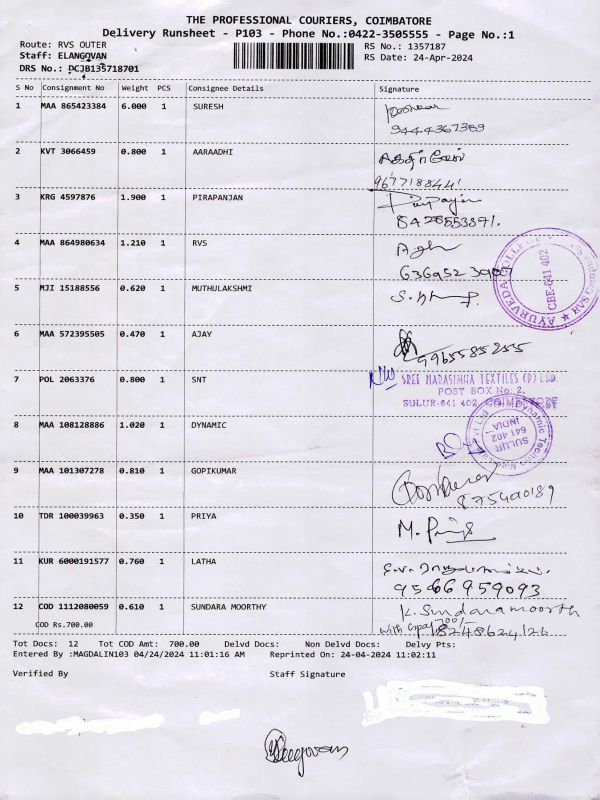 THE PROFESSIONAL COURIERS, COIMBATORE
Delivery Runsheet - P103 - Phone No.:0422-3505555 - Page No.:1
Route: RVS OUTER
RS No.: 1357187
Staff: ELANGOVAN
RS Date: 24-Apr-2024
DRS No.: DCJB135718701
S No Consignment No Weight PCS Consignee Details Signature
1 MAA 865423384 6.000 1 SURESH
9444367389
2 KVT 3066459 0.800 1 AARAADHI
9677188441
3 KRG 4597876 1.900 1 PIRAPANJAN
8428553891.
4 MAA 864980634 1.210 1 RVS
636952 39007
AYURVEDA COLLEGE
CBE-641 402
5 MJI 15188556 0.620 1 MUTHULAKSHMI
6 MAA 572395505 0.470 1 AJAY
9965585255
7 POL 2063376 0.800 1 SNT SREE NARASIMHA TEXTILES (P) LTD.
POST BOX No: 2,
SULUR-641 402. COIMBATORE
8 MAA 108128886 1.020 1 DYNAMIC
SULUR
641 402
INDIA
9 MAA 101307278 0.810 1 GOPIKUMAR
10 TDR 100039963 0.350 1 PRIYA M. Priya
11 KUR 6000191577 0.760 1 LATHA
9566959093
12 COD 1112080059 0.610 1 SUNDARA MOORTHY K. Sundaramoorth
COD Rs.700.00 with Gpay 700/-
Tot Docs: 12 Tot COD Amt: 700.00 Delvd Docs: Non Delvd Docs: Delvy Pts:
Entered By :MAGDALIN103 04/24/2024 11:01:16 AM Reprinted On: 24-04-2024 11:02:11
Verified By Staff Signature